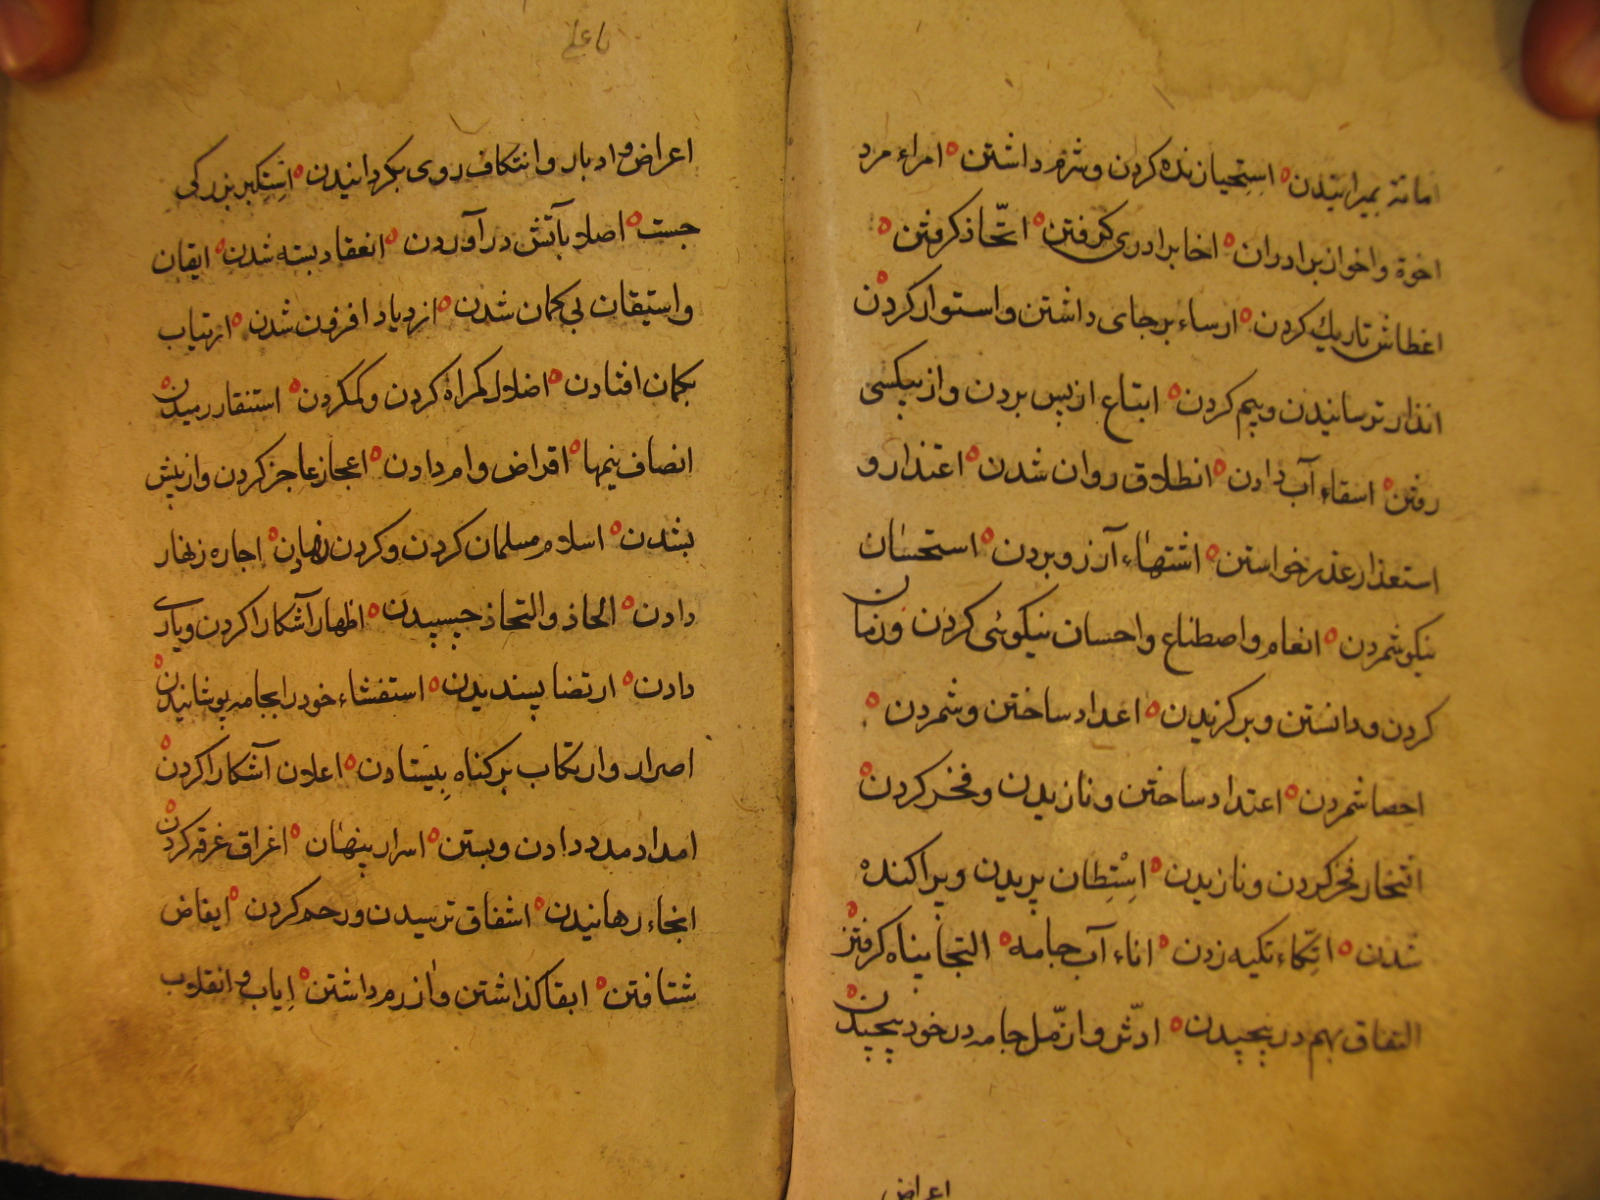 اماتة بمیرانیدن استحیا زنده کردن و شرم داشتن امراء مرد
اخوة و اخوان برادران اخا برادری کرفتن اتّخاذ کرفتن
اغطاش تاریک کردن ارساء برجای داشتن و استوار کردن
انذار ترسانیدن و بیم کردن ابتاع از پس بردن و از پی کسی
رفتن اسقاء آب دادن انطلاق روان شدن اعتذار و
استعذار عذر خواستن اشتهاء آرزو بردن استحسان
نیکو شمردن انعام و اصطناع و احسان نیکوئی کردن
کردن و دانستن و برکزیدن اعداد ساختن و شمردن
احصا شمردن اعتداد ساختن و نازیدن و فخر کردن
افتخار فخر کردن و نازیدن اِسْتِطان پریدن و پراکنده
شدن اتّکاء تکیه زدن اناء آب جامه التجا پناه کرفتن
التفاق بهم در پیچیدن ادّثّر و ازّمّل جامه در خود پیچیدن
اعراض
یا علی
اعراض و ادبار و انتکاف روی بکردانیدن اِستِکبر بزرکی
جست اصلا بآتش درآوردن انعقاد بسته شدن ایقان
و استیقان بی کمان شدن ازدیاد افزون شدن ارتیاب
بکمان افتادن اضلال کمراه کردن و کم کردن استنفار رمیدن
انصاف نیمها اقراض وام دادن اعجاز عاجز کردن و از پیش
بشدن اسلام مسلمان کردن و کردن نهادن اجاره زنهار
دادن الحاذ و التحاذ چسپیدن اظهار آشکارا کردن و یاری
دادن ارتضا پسندیدن استغشاء خود را بجامه پوشانیدن
اصرار و ارتکاب بر کناه بیستادن اعلان آشکارا کردن
امداد مدد دادن و بستن اسرار پنهان اغراق غرقه کردن
انجاء رهانیدن اشفاق ترسیدن و رحم کردن ایفاض
شتافتن ابقا کذاشتن و آزرم داشتن اِیاب و انقلوب